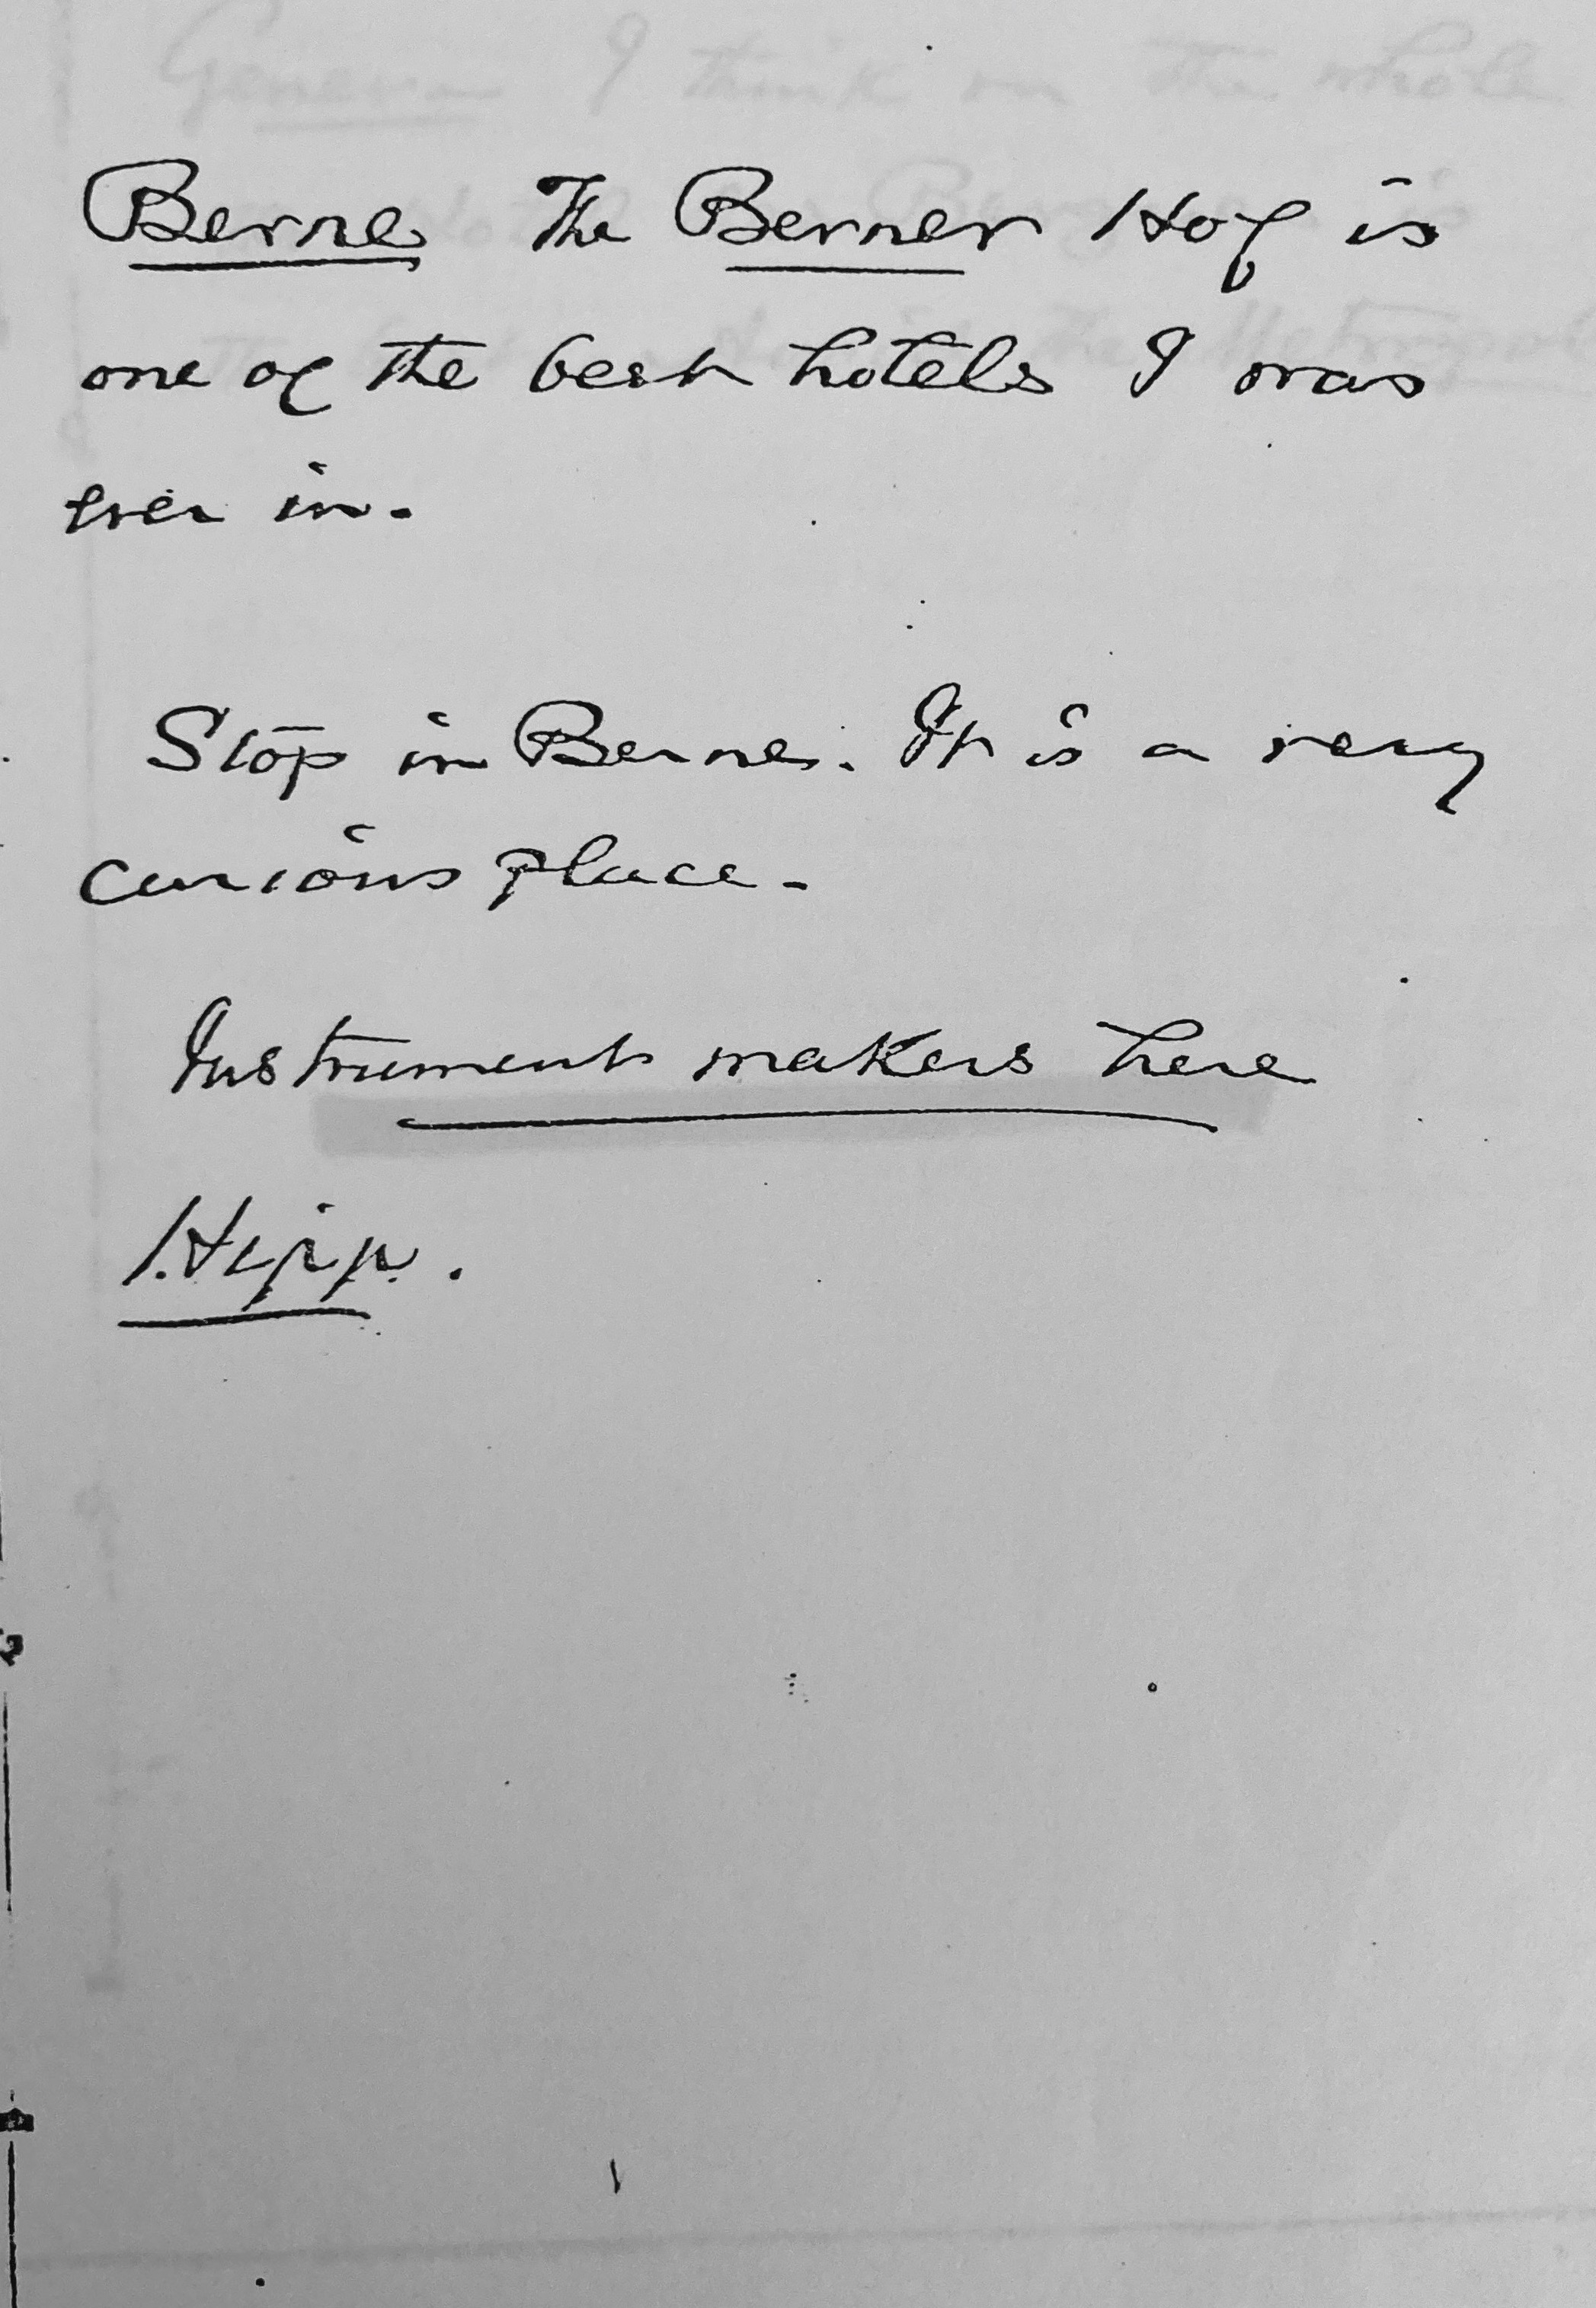 Berne The Berner Hof is
one of the best hotels I was
ever in.
Stop in Berne. It is a very
curious place.
Instrument makers here
Hipp.